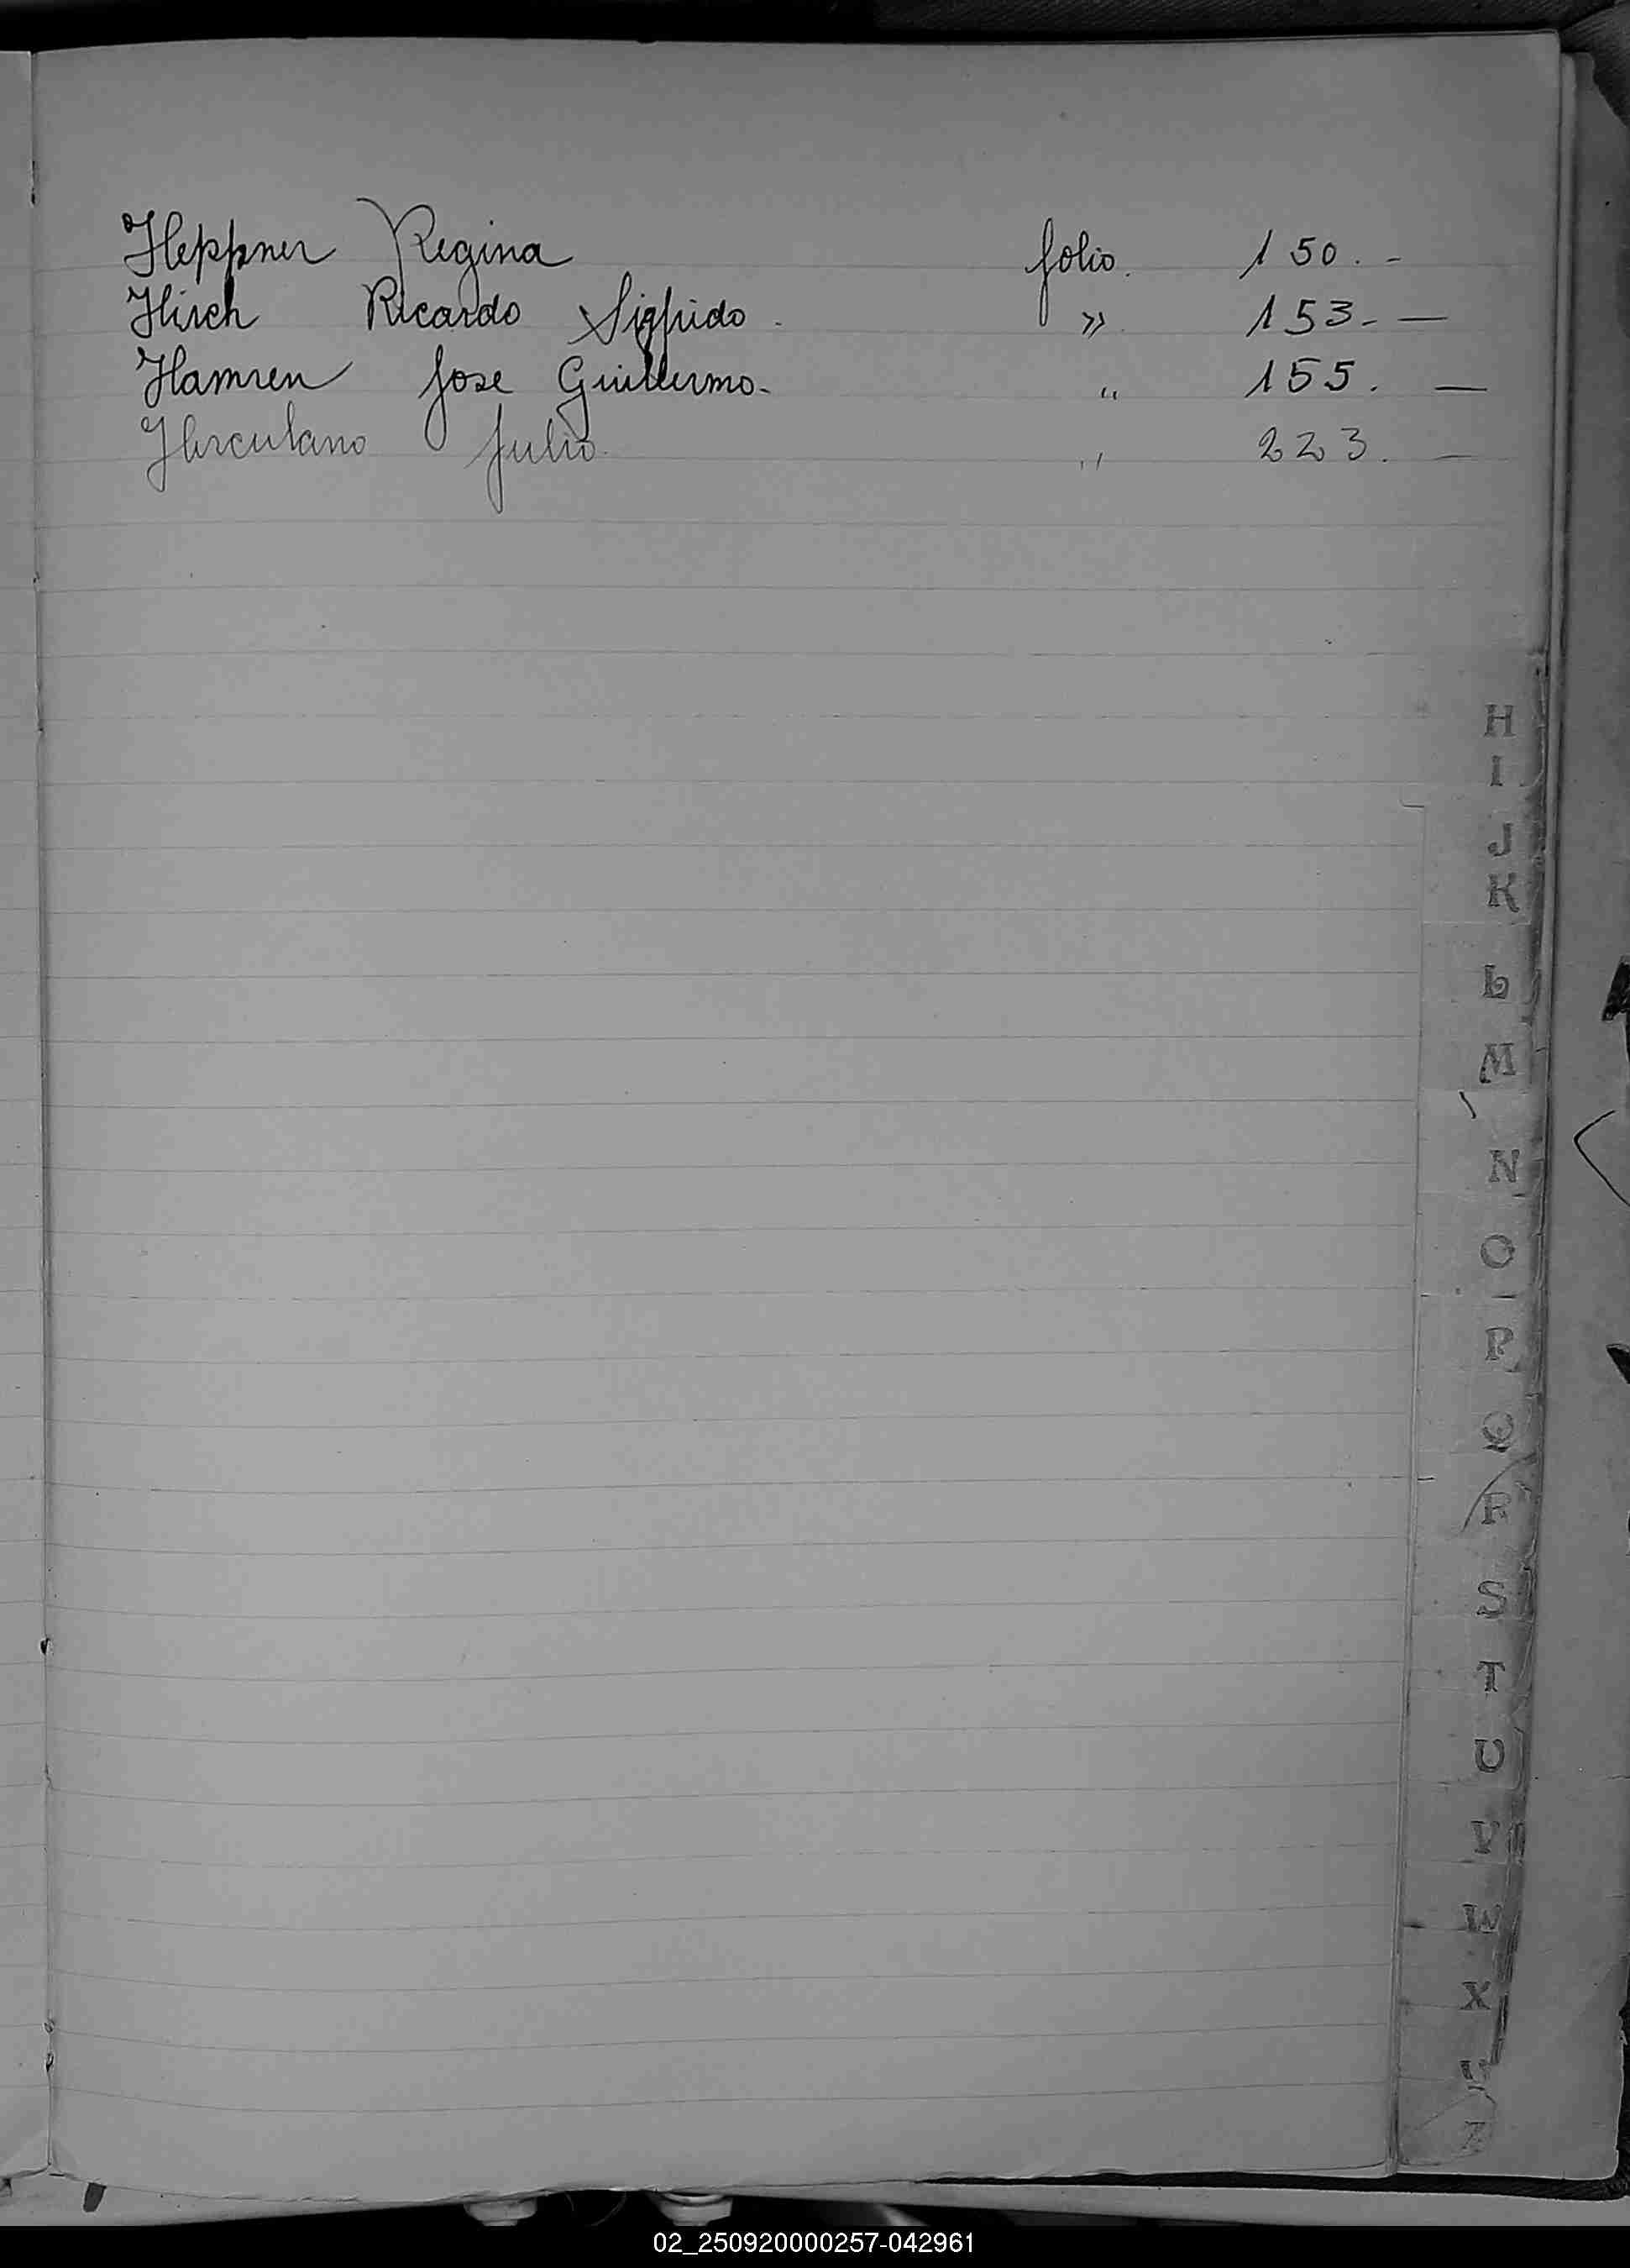 Heppner Regina folio. 150. -
Hirch Ricardo Sigfrido. » 153. - —
Hamren Jose Guillermo. - " 155. —
Herculano Julio. " 223. —
H
I
J
K
L
M
N
O
P
Q
R
S
T
U
V
W
X
Y
Z
02_250920000257-042961